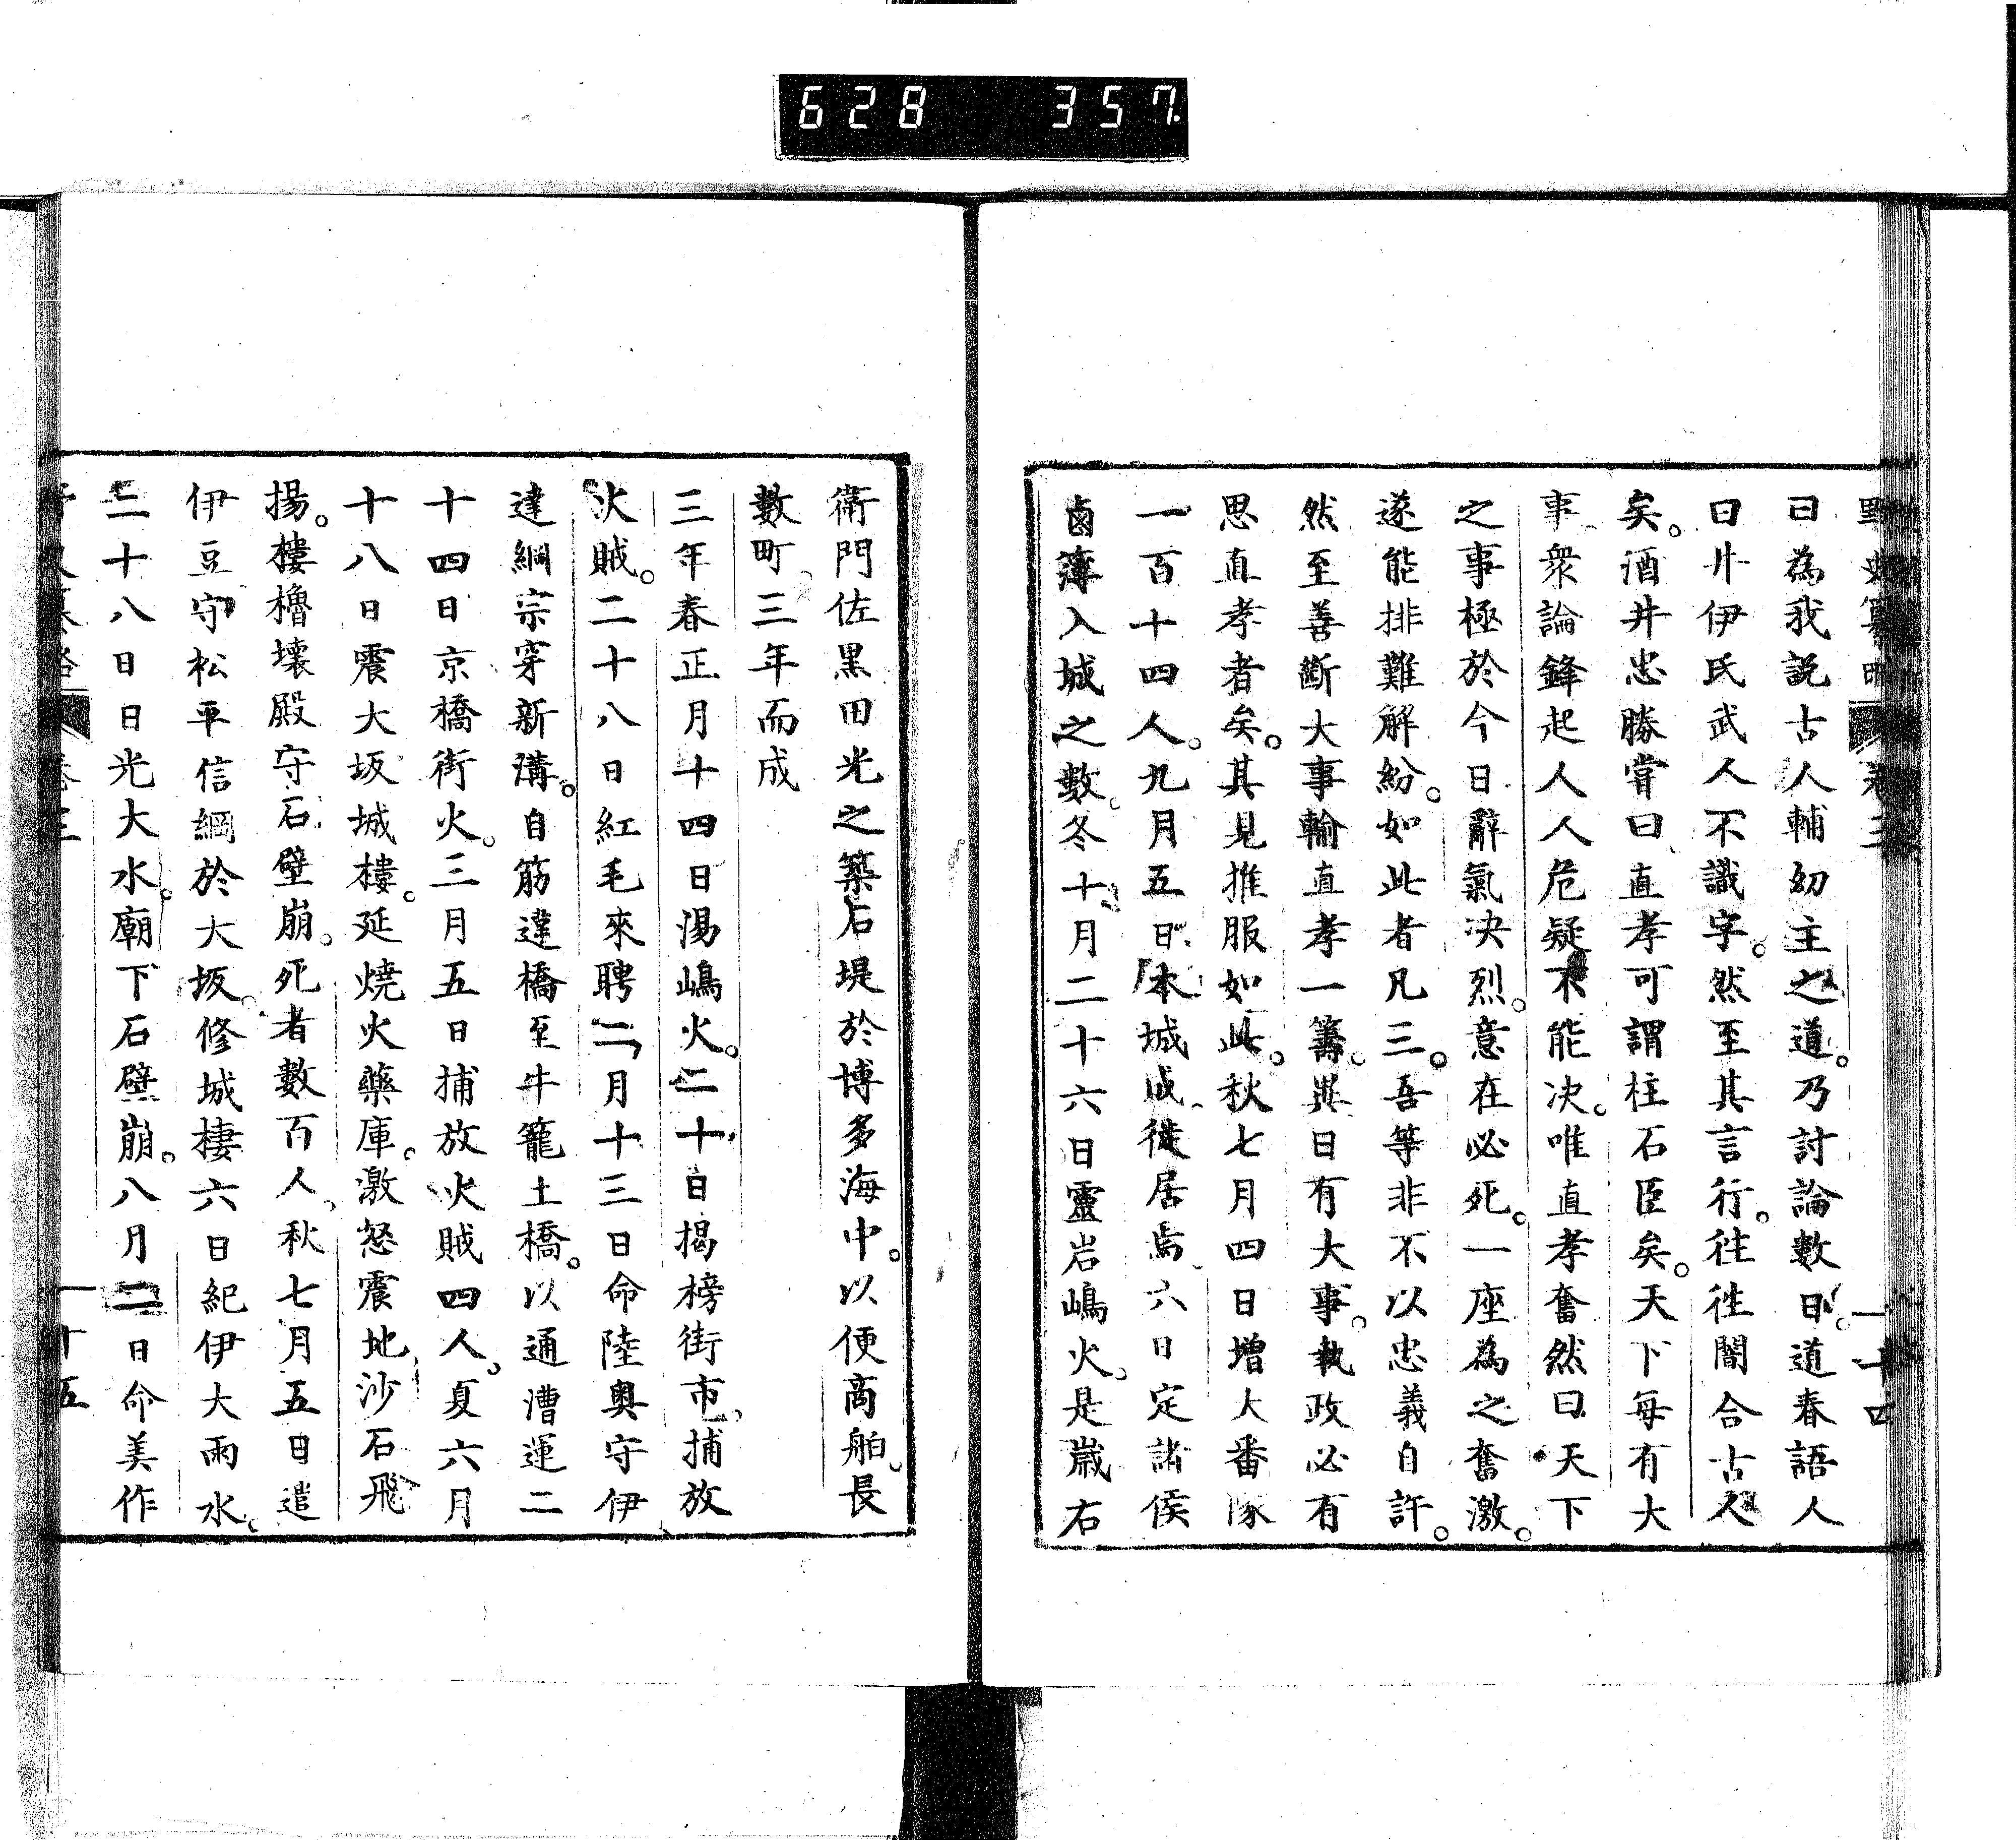 628 357
野史纂略 卷三 一十四
曰為我説古人輔幼主之道。乃討論數日。道春語人
曰井伊氏武人不識字。然至其言行。往往闇合古人
矣。酒井忠勝嘗曰、直孝可謂柱石臣矣。天下每有大
事、衆論鋒起人人危疑不能决。唯直孝奮然曰天下
之事極於今日辭氣决烈。意在必死。一座為之奮激。
遂能排難解紛。如此者凡三。吾等非不以忠義自許。
然至善斷大事輸直孝一籌。異日有大事。執政必有
思直孝者矣。其見推服如此。秋七月四日增大番隊
一百十四人。九月五日、本城成、徙居焉、六日定諸侯
鹵簿入城之數。冬十月二十六日靈岩嶋火。是歲右
衛門佐黒田光之築石堤於博多海中。以便商舶。長
數町、三年而成
三年春正月十四日湯嶋火。二十日揭榜街市、捕放
火賊。二十八日紅毛來聘二月十三日命陸奥守伊
達綱宗穿新溝。自筋違橋至牛籠土橋。以通漕運二
十四日京橋街火。三月五日捕放火賊四人。夏六月
十八日震大坂城樓。延燒火藥庫。激怒震地沙石飛
揚。樓櫓壞殿守石壁崩。死者數百人、秋七月五日遣
伊豆守松平信綱於大坂。修城棲六日紀伊大雨水。
二十八日日光大水。廟下石壁崩。八月二日命美作
一十五